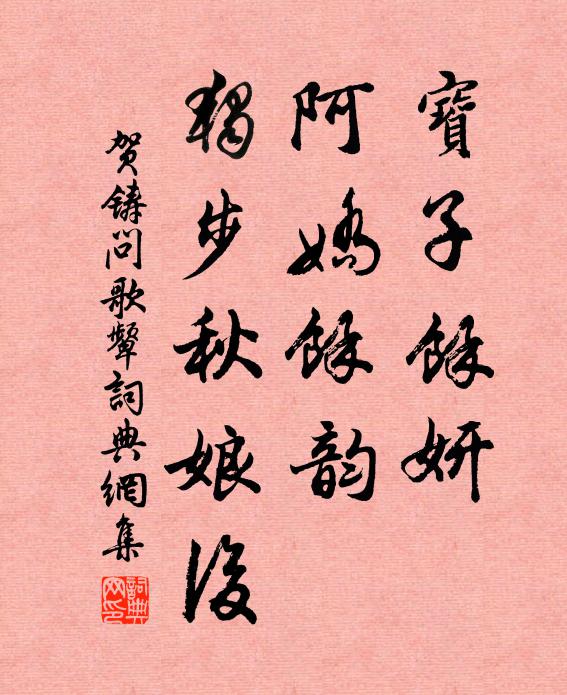 寶子餘妍
阿嬌餘韵
獨步秋娘後
贺鑄問歌顰詞典網集
詞典网印